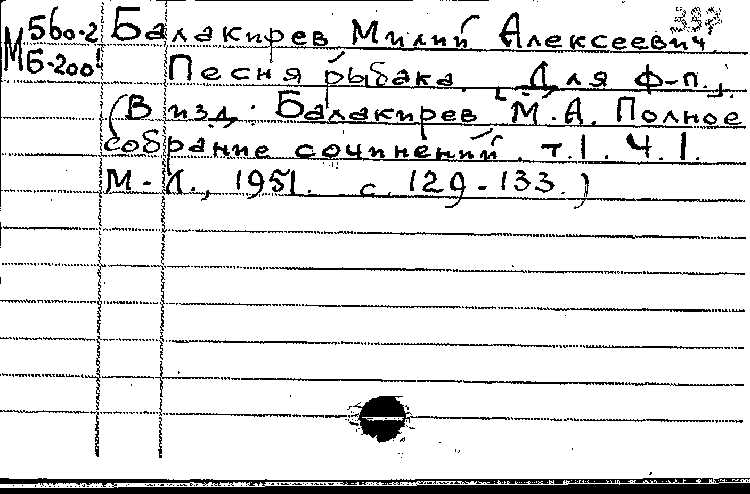 337
М 560-2 Балакирев Милий Алексеевич.
Б-200 Песня рыбака. [Для ф-п.].
(В изд.: Балакирев М.А. Полное
собрание сочинений. т.1. Ч.1.
М.-Л., 1951. с. 129-133.)